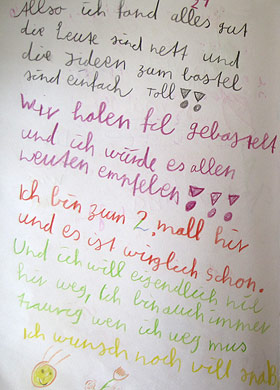 Allso ich fand alles gut
die Leute sind nett und
die Ideen zum bastel
sind einfach toll!!
Wir haben fil gebastelt
und ich würde es allen
weuten empfelen!!!
Ich bin zum 2. mall hir
und es ist wirglich schon.
Und ich will eigendlich nie
hir weg, Ich bin auch immer
traureg wen ich weg mus
Ich wunsch noch vill spaß